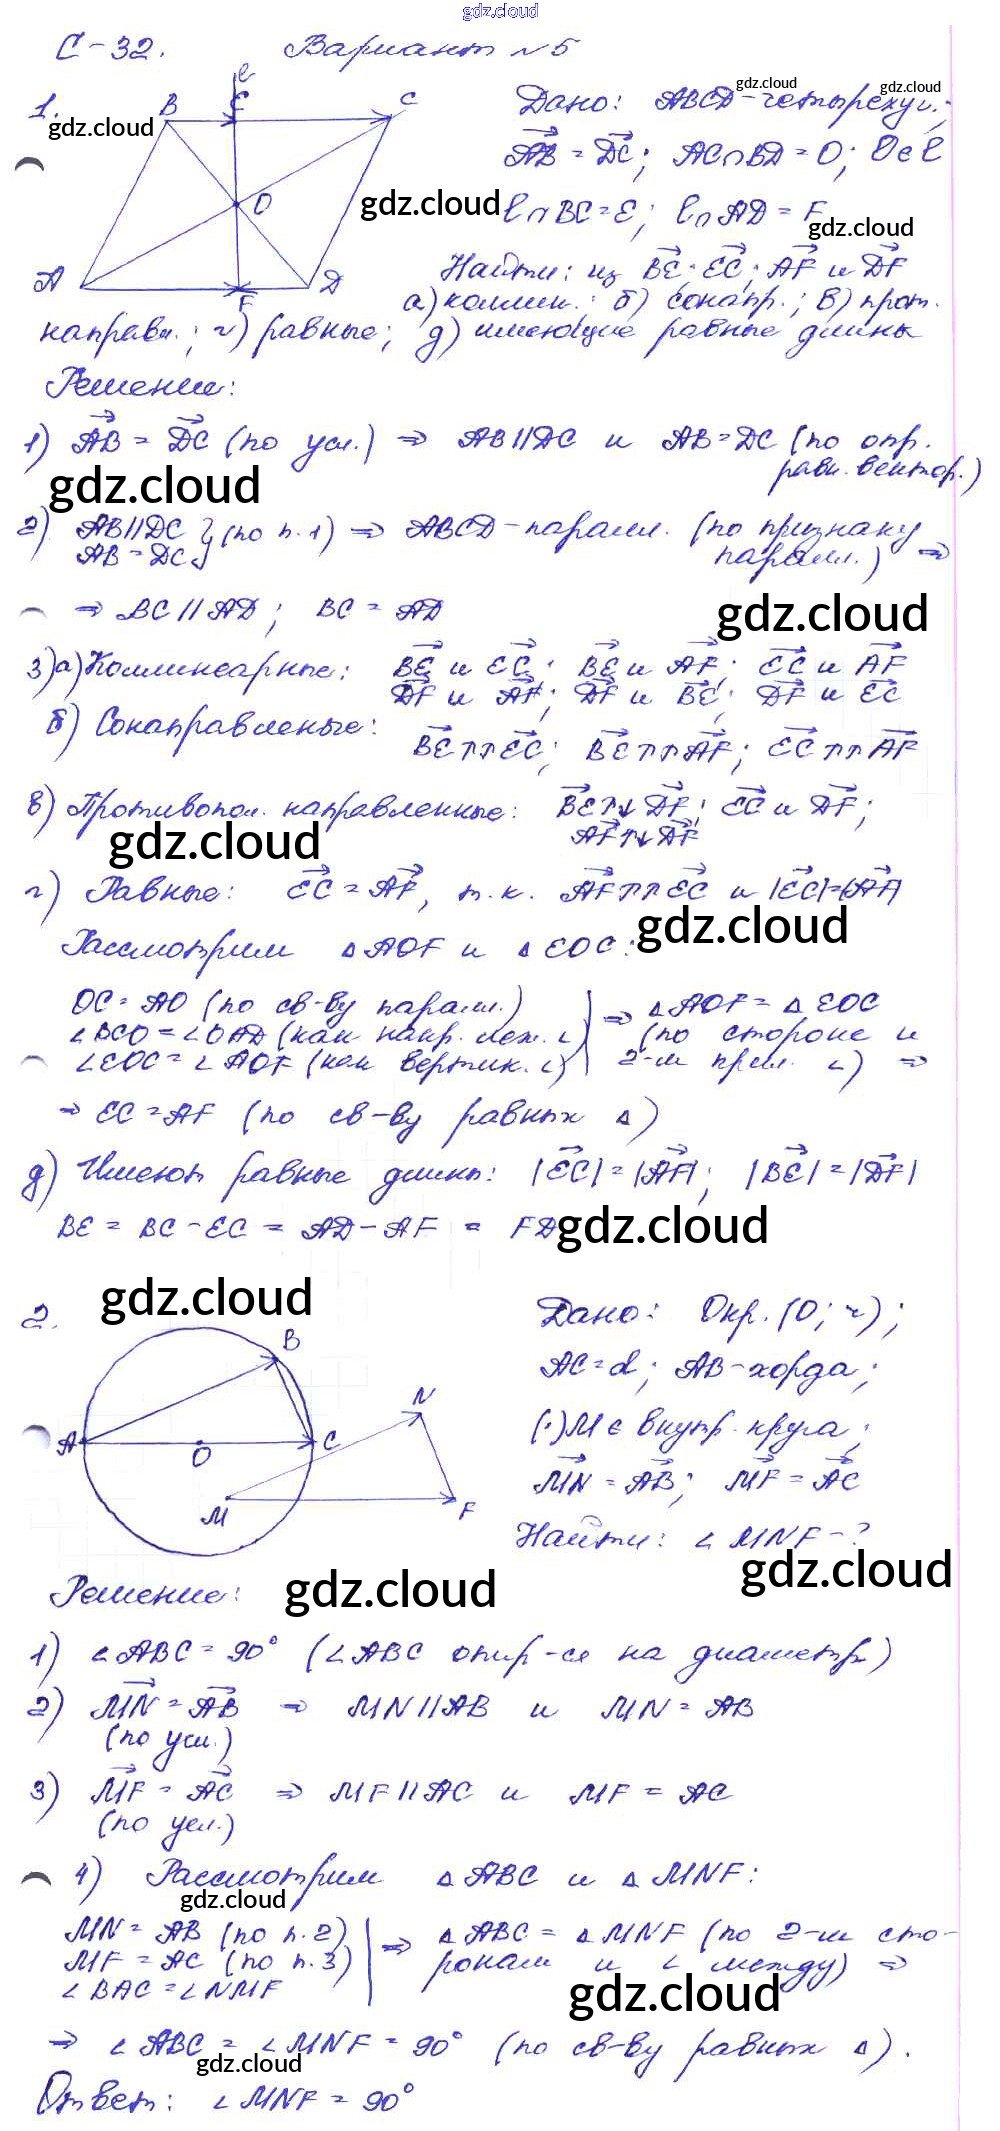 gdz.cloud
С-32. Вариант №5
1.
B E C
ℓ
O
A F D
gdz.cloud
Дано: ABCD-четырехуг.;
gdz.cloud gdz.cloud
AB = DC; AC∩BD=O; O∈ℓ
gdz.cloud
ℓ∩BC=E; ℓ∩AD=F
gdz.cloud
Найти: из BE; EC; AF и DF
а) коллин.; б) сонапр.; в) прот.
направл.; г) равные; д) имеющие равные длины
Решение:
1) AB = DC (по усл.) ⇒ AB||DC и AB=DC (по опр.
равн. вектор.)
gdz.cloud
2) AB||DC
AB=DC } (по п.1) ⇒ ABCD-паралл. (по признаку
паралл.) ⇒
⇒ BC||AD; BC=AD
gdz.cloud
3) а) Коллинеарные: BE и EC; BE и AF; EC и AF
DF и AF; DF и BE; DF и EC
б) Сонаправленые:
BE↑↑EC; BE↑↑AF; EC↑↑AF
в) Противопол. направленные: BE↑↓DF; EC и DF;
AF↑↓DF
gdz.cloud
г) Равные: EC = AF, т.к. AF↑↑EC и |EC|=|AF|
gdz.cloud
Рассмотрим △AOF и △EOC:
OC=AO (по св-ву паралл.)
∠BCO=∠OAD (как накр. леж. ∠)
∠EOC=∠AOF (как вертик. ∠)
⇒ △AOF=△EOC
(по стороне и
2-м прил. ∠) ⇒
⇒ EC=AF (по св-ву равных △)
д) Имеют равные длины: |EC|=|AF|; |BE|=|DF|
BE = BC-EC = AD-AF = FD
gdz.cloud
2.
gdz.cloud
B
A O C
N
M F
Дано: Окр.(O; r);
AC=d; AB-хорда;
(·)M∈ внутр. круга;
MN = AB; MF = AC
Найти: ∠MNF-?
gdz.cloud
Решение:
gdz.cloud
1) ∠ABC=90° (∠ABC опир-ся на диаметр)
2) MN = AB ⇒ MN||AB и MN=AB
(по усл.)
3) MF = AC ⇒ MF||AC и MF=AC
(по усл.)
4) Рассмотрим △ABC и △MNF:
gdz.cloud
MN=AB (по п.2)
MF=AC (по п.3)
∠BAC=∠NMF
⇒ △ABC=△MNF (по 2-м сто-
ронам и ∠ между) ⇒
gdz.cloud
⇒ ∠ABC=∠MNF=90° (по св-ву равных △).
gdz.cloud
Ответ: ∠MNF=90°